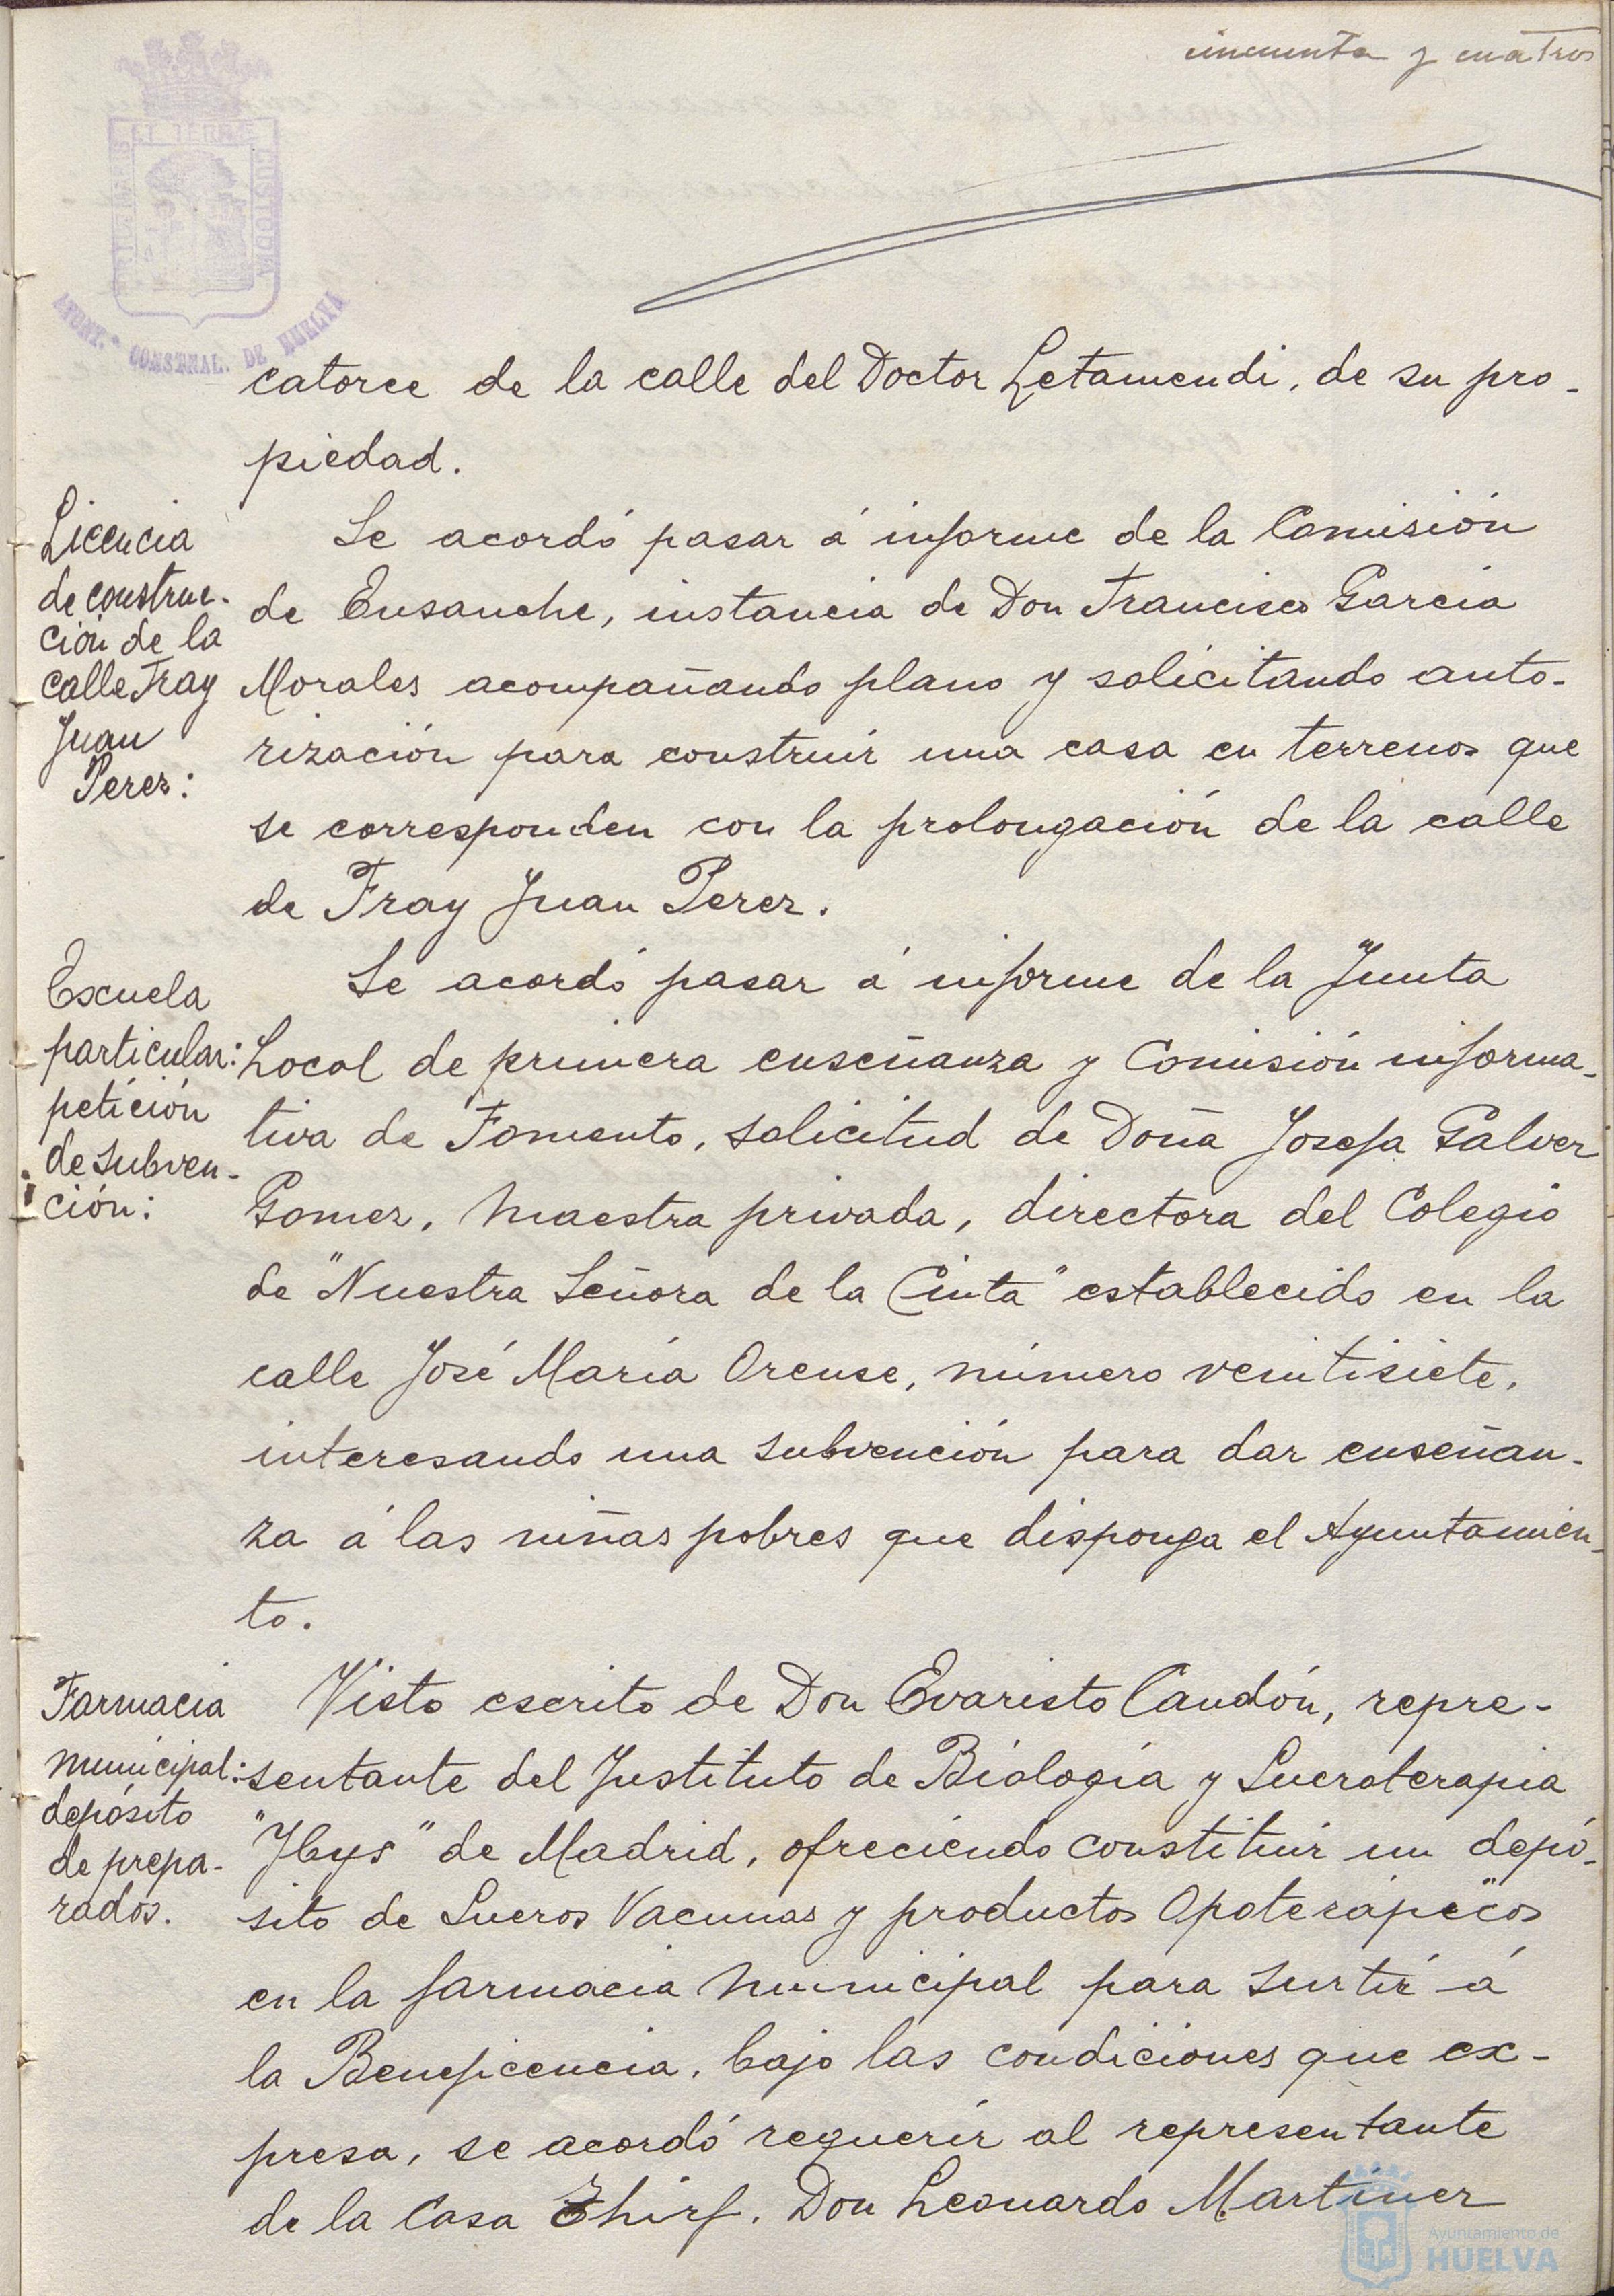 cincuenta y cuatro
PORTUS MARIS ET TERRAE CUSTODIA
AYUNT.º CONSTNAL. DE HUELVA
catorce de la calle del Doctor Letamendi, de su pro-
piedad.
Licencia
de construc-
ción de la
calle Fray
Juan
Perez:
Se acordó pasar á informe de la Comisión
de Ensanche, instancia de Don Francisco Garcia
Morales acompañando plano y solicitando auto-
rización para construir una casa en terrenos que
se corresponden con la prolongación de la calle
de Fray Juan Perez.
Escuela
particular:
petición
de subven-
ción:
Se acordó pasar á informe de la Junta
Local de primera enseñanza y Comisión informa-
tiva de Fomento, solicitud de Doña Josefa Galvez
Gomez, maestra privada, directora del Colegio
de "Nuestra Señora de la Cinta" establecido en la
calle José María Orense, número veintisiete,
interesando una subvención para dar enseñan-
za á las niñas pobres que disponga el Ayuntamien-
to.
Farmacia
municipal:
depósito
de prepa-
rados.
Visto escrito de Don Evaristo Candón, repre-
sentante del Instituto de Biología y Sueroterapia
"Ybys" de Madrid, ofreciendo constituir un depó-
sito de Sueros Vacunas y productos Opoterápicos
en la farmacia municipal para surtir á
la Beneficencia, bajo las condiciones que ex-
presa, se acordó requerir al representante
de la Casa Thirf, Don Leonardo Martinez
Ayuntamiento de
HUELVA